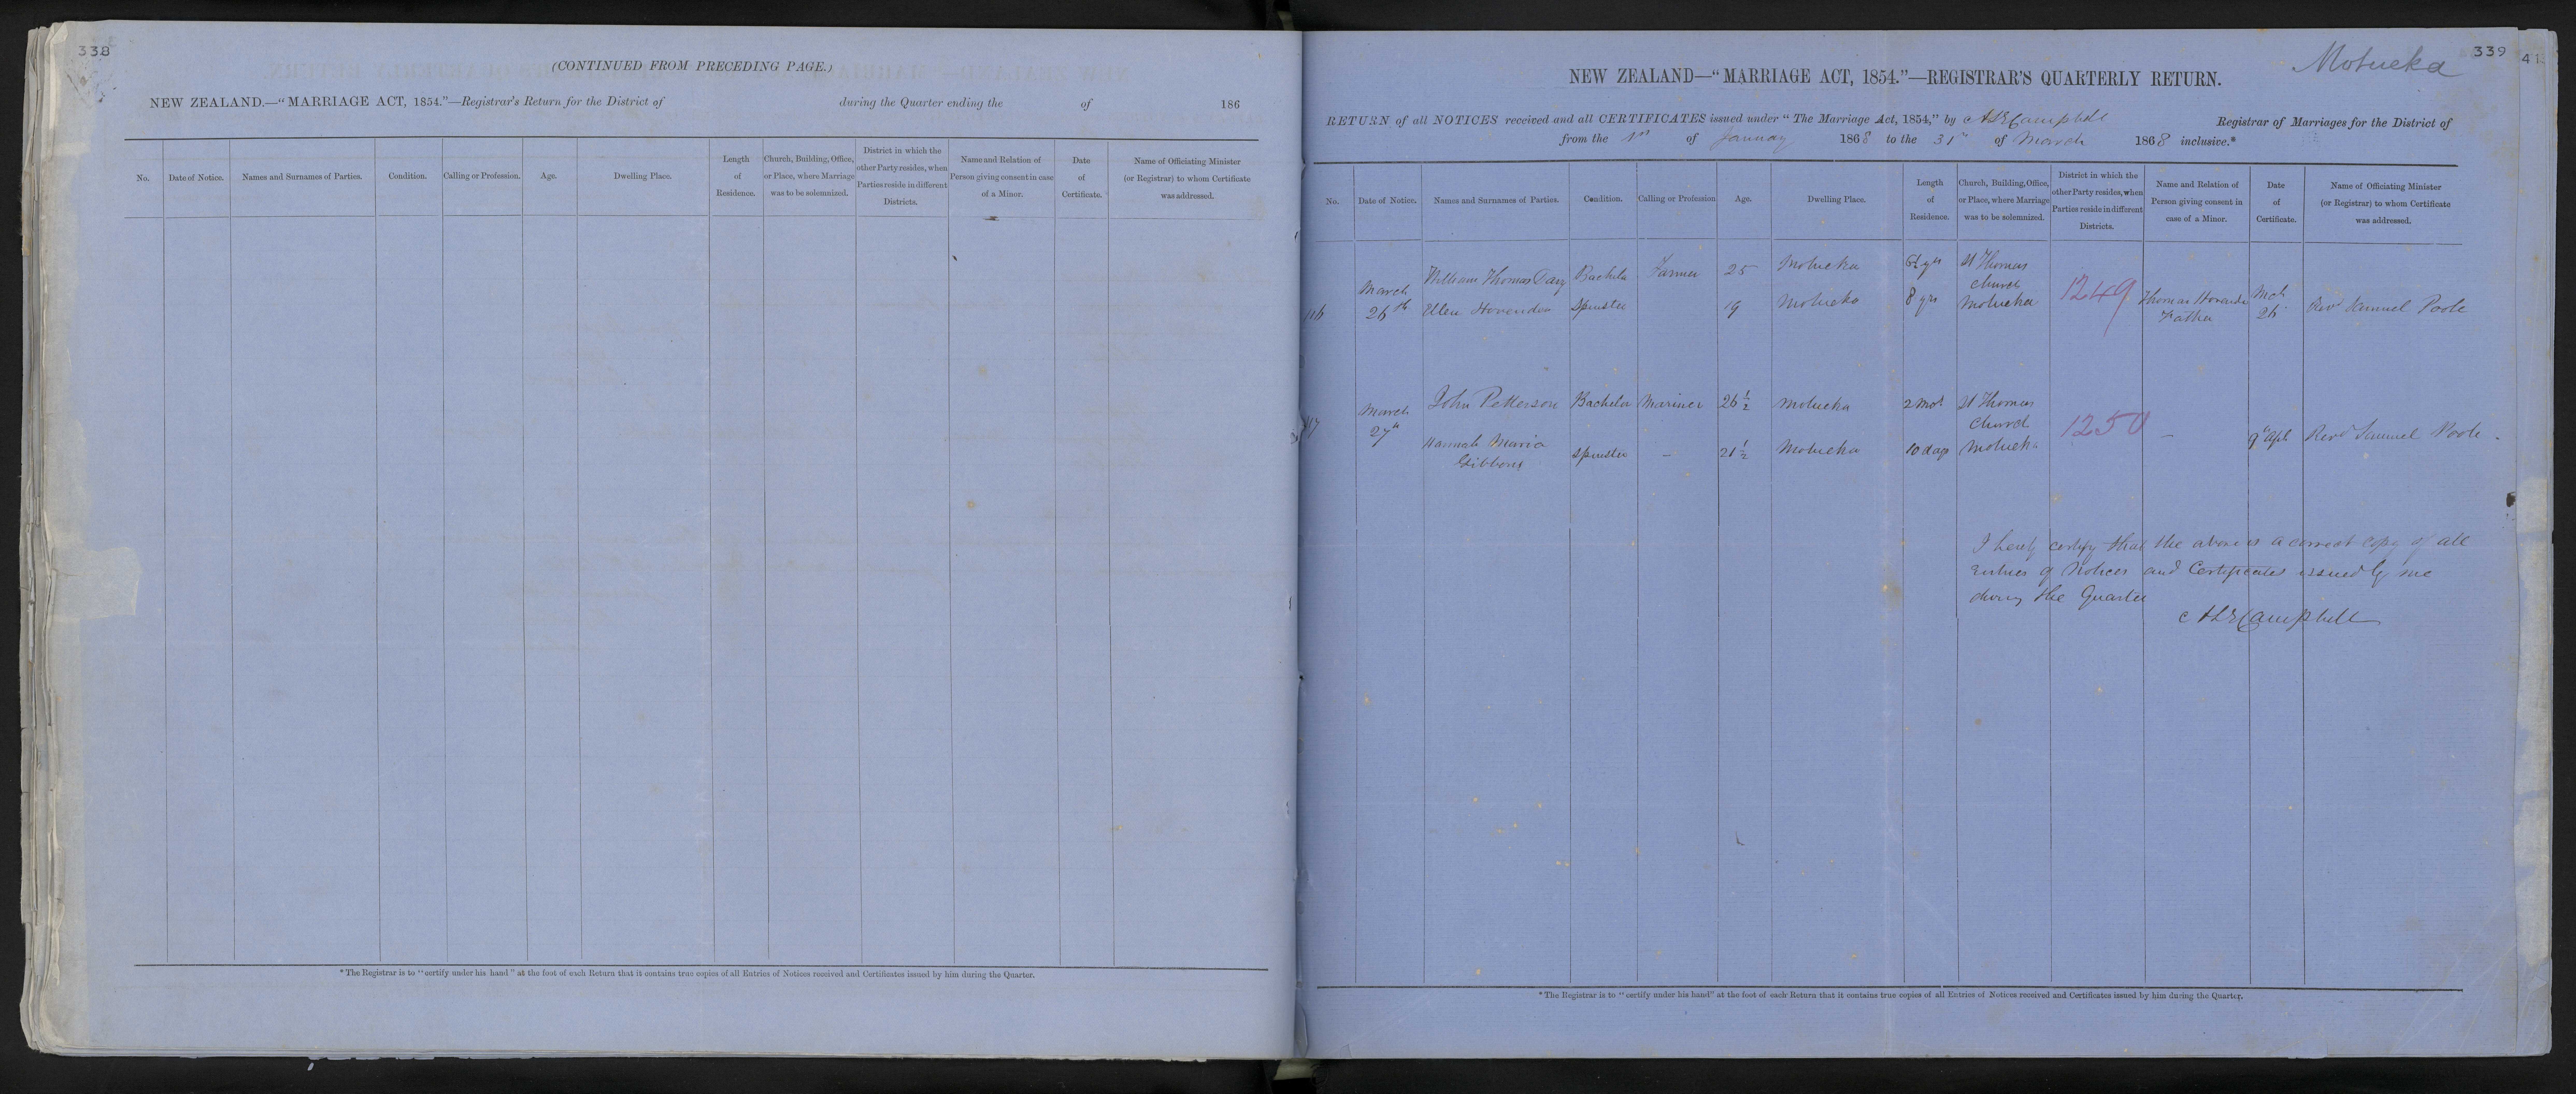 338
(CONTINUED FROM PRECEDING PAGE.)
NEW ZEALAND.—"MARRIAGE ACT, 1854."—Registrar's Return for the District of during the Quarter ending the of 186
No. Date of Notice. Names and Surnames of Parties. Condition. Calling or Profession. Age. Dwelling Place. Length of Residence. Church, Building, Office, or Place, where Marriage was to be solemnized. District in which the other Party resides, when Parties reside in different Districts. Name and Relation of Person giving consent in case of a Minor. Date of Certificate. Name of Officiating Minister (or Registrar) to whom Certificate was addressed.
* The Registrar is to "certify under his hand" at the foot of each Return that it contains true copies of all Entries of Notices received and Certificates issued by him during the Quarter.
339
41
Motueka
NEW ZEALAND—"MARRIAGE ACT, 1854."—REGISTRAR'S QUARTERLY RETURN.
RETURN of all NOTICES received and all CERTIFICATES issued under "The Marriage Act, 1854," by Campbell Registrar of Marriages for the District of
from the 1st of January 1868 to the 31st of March 1868 inclusive.*
No. Date of Notice. Names and Surnames of Parties. Condition. Calling or Profession Age. Dwelling Place. Length of Residence. Church, Building, Office, or Place, where Marriage was to be solemnized. District in which the other Party resides, when Parties reside in different Districts. Name and Relation of Person giving consent in case of a Minor. Date of Certificate. Name of Officiating Minister (or Registrar) to whom Certificate was addressed.
William Thomas Bachelor Farmer 25 Motueka 6½ yrs St Thomas
116 March 26th Ellen Spinster 19 Motueka 8 yrs Church Motueka 1249 Thomas Father Mch 26 Revd Samuel Poole
John Petterson Bachelor Mariner 26½ Motueka 2 mos St Thomas
March 27th Hannah Maria Gibbons Spinster – 21½ Motueka 10 days Church Motueka 1250 – 9th Apl Revd Samuel Poole
I hereby certify that the above is a correct copy of all
Entries of Notices and Certificates issued by me
during the Quarter
Campbell
* The Registrar is to "certify under his hand" at the foot of each Return that it contains true copies of all Entries of Notices received and Certificates issued by him during the Quarter.